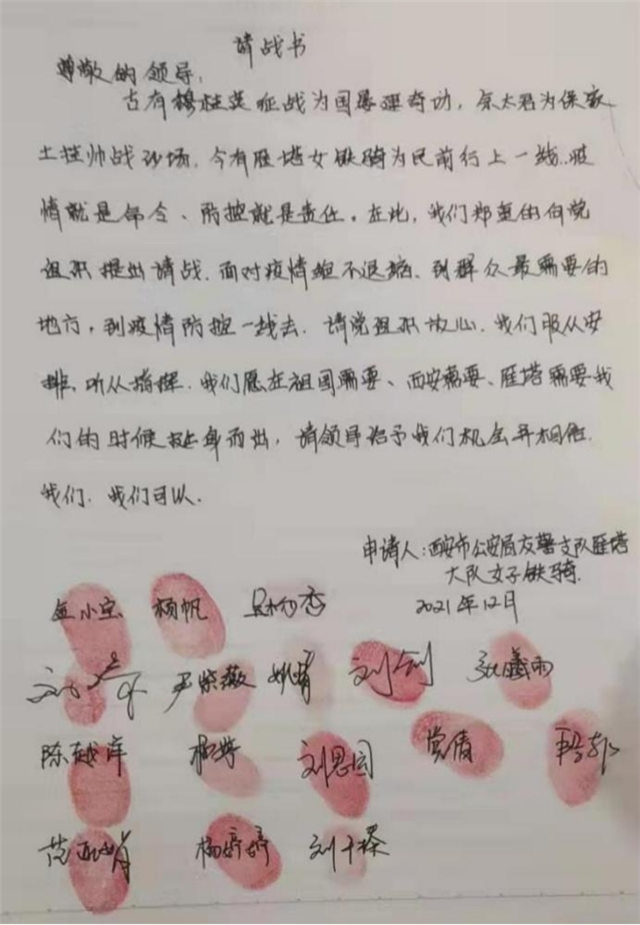 请战书
尊敬的领导：
古有穆桂英征战为国屡建奇功，佘太君为保家
土挂帅战沙场，今有雁塔女铁骑为民前行上一线。疫
情就是命令、防控就是责任。在此，我们郑重的向党
组织提出请战，面对疫情绝不退缩、到群众最需要的
地方，到疫情防控一线去。请党组织放心，我们服从安
排、听从指挥，我们愿在祖国需要、西安需要、雁塔需要我
们的时候挺身而出，请领导给予我们机会并相信
我们，我们可以。
申请人：西安市公安局交警支队雁塔
大队女子铁骑
2021年12月
杨帆
尹紫薇 姚婧 刘钊 张曦雨
陈越岸 杨婷 刘思园 党倩
杨婷婷